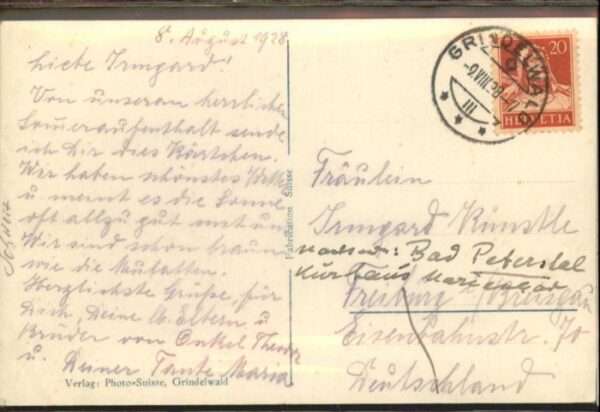 8. August 1928
Liebe Irmgard!
Von unserem herrlichen
Sommeraufenthalt sende
ich Dir dies Kärtchen.
Wir haben schönstes Wetter
u. meint es die Sonne
oft allzu gut mit uns
Wir sind schon braun
wie die Mulatten.
Herzlichste Grüße, für
Dich, Deine lb. Eltern u
Brüder von Onkel Theodor
u. Deiner Tante Maria
Verlag: Photo-Suisse, Grindelwald
Fabrication Suisse
Schweiz
GRINDELWALD
20
HELVETIA
Fräulein
Irmgard Künstle
Bad Peterstal
Kurhaus
Freiburg / Breisgau
Eisenbahnstr. 70
Deutschland